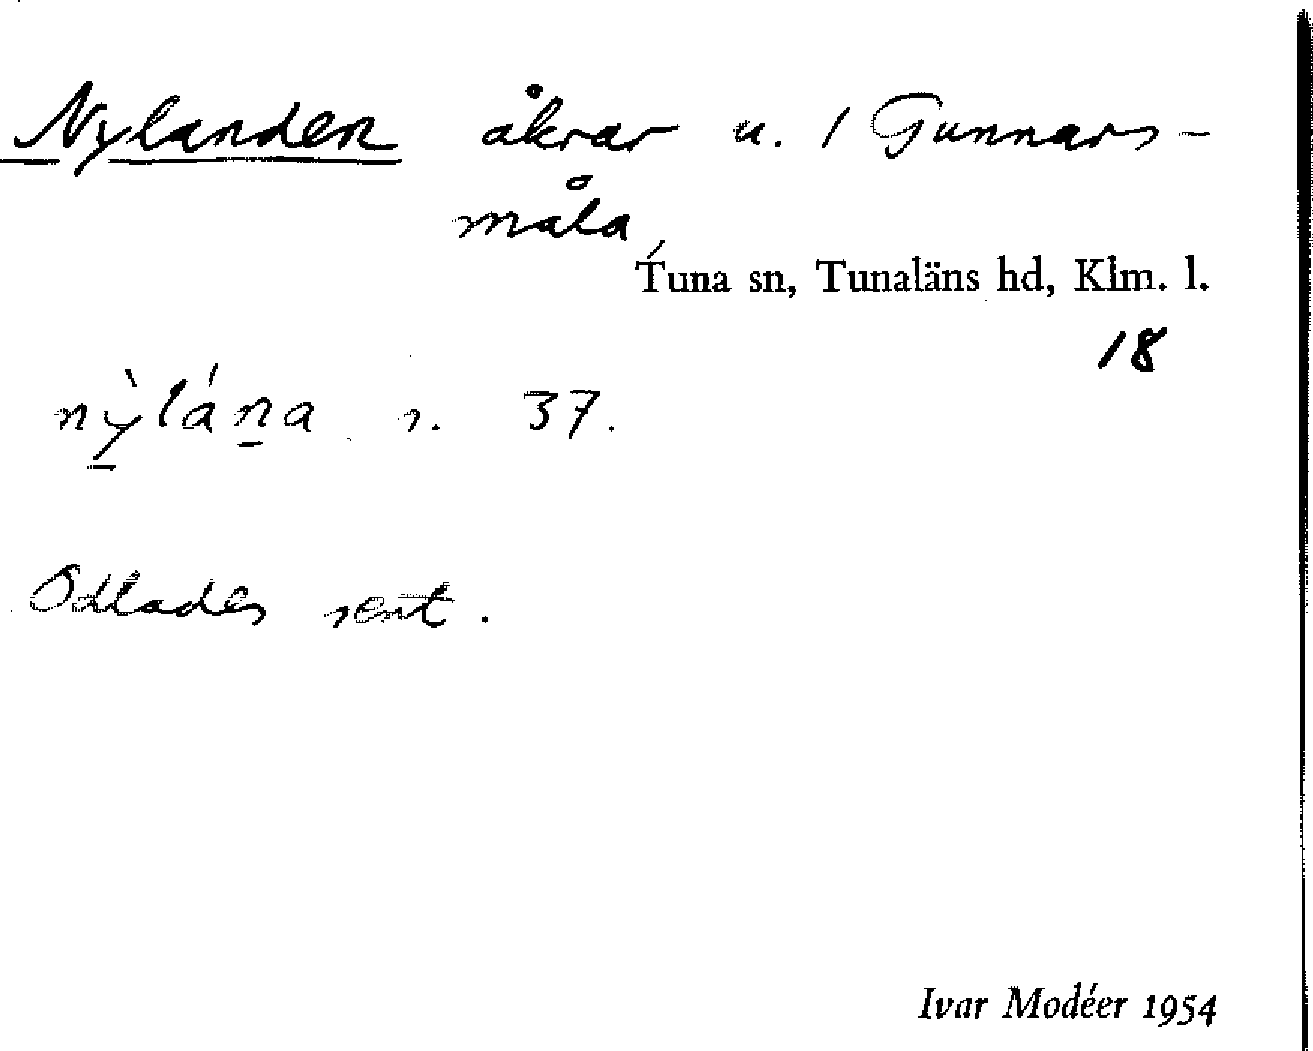 Nylanden åkrar u. 1 Gunnars-
måla,
Tuna sn, Tunaläns hd, Klm. l.
18
nỳ̠láṉa s. 37.
Odlades sent.
Ivar Modéer 1954